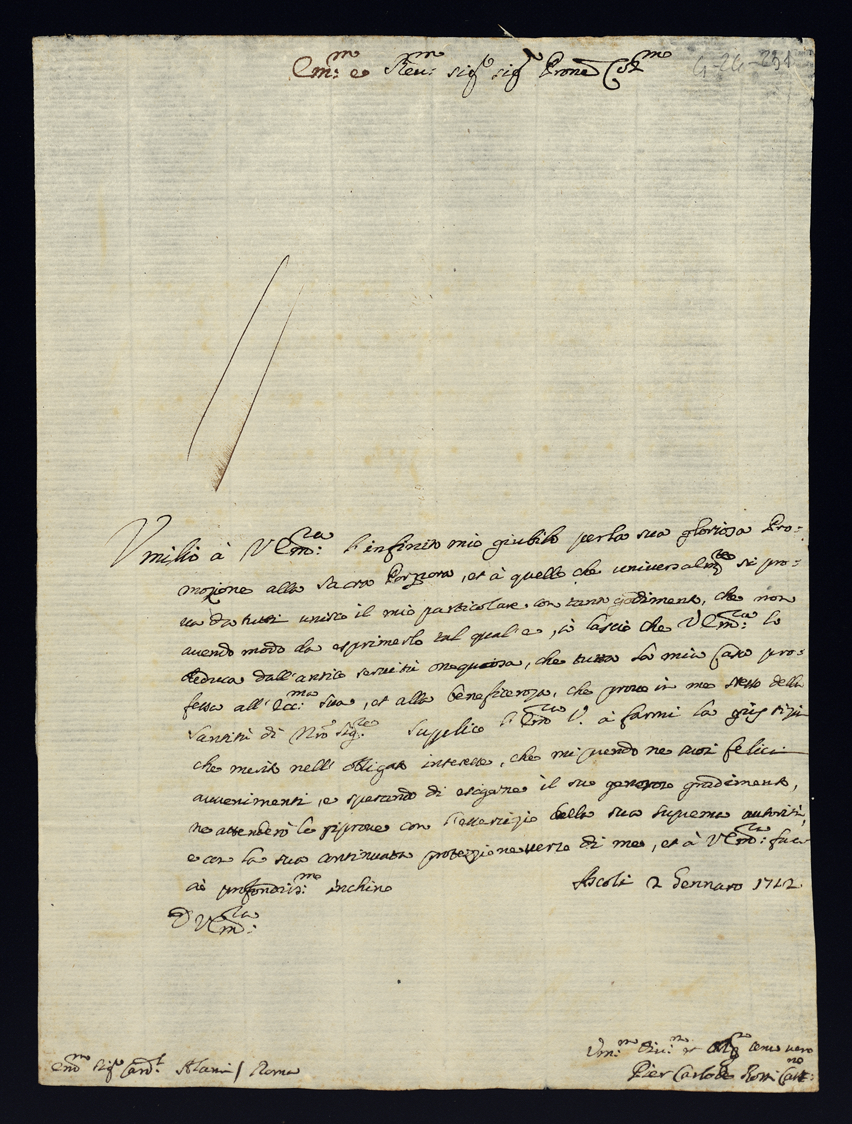 Em:mo e Reu:mo Sig:r Sig:r Prone Col:mo
Vmilio à V Em:za l'infinito mio giubilo per la sua gloriosa Pro=
mozione alla Sacra Porpora, et à quello che universalm:te si pro=
ua da tutti unisco il mio particolare con tanto godimento, che non
auendo modo da esprimerlo tal qual'e, lascio che V Em:za lo
deduca dall'antica seruitù ossequiosa, che tutta la mia Casa pro=
fessa all'Ecc:ma sua, et alla beneficenza, che prouo in me stesso della
Santità di N:ro Sig:re Supplico l'Em:za V. à farmi la giustizia
che merita nell'obligato interesse, che mi prendo ne suoi felici
auuenimenti, e sperando di esigerne il suo generoso gradimento,
ne attenderò le riproue con l'essercizio della sua suprema autorità,
e con la sua continuata protezzione uerso di me, et à V Em:za fac=
cio profondiss:mo inchino
Ascoli 2 Gennaro 1712
D V Em:za
Em:mo Sig:r Card:l Albani / Roma
Vm:mo Diu:mo et Oblig:mo seru uero
Pier Carlo de Rossi